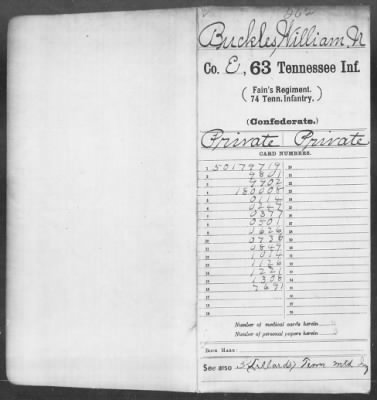 Buckles, William N
Co. E, 63 Tennessee Inf.
(Fain's Regiment.
74 Tenn. Infantry.)
(Confederate.)
Private Private
CARD NUMBERS.
1 50179719
2 9801
3 9902
4 180008
5 0114
6 0247
7 0377
8 0501
9 0626
10 0738
11 0847
12 1014
13 1126
14 1221
15 1308
16 7691
Number of medical cards herein
Number of personal papers herein
BOOK MARK:
See also Tenn mtd